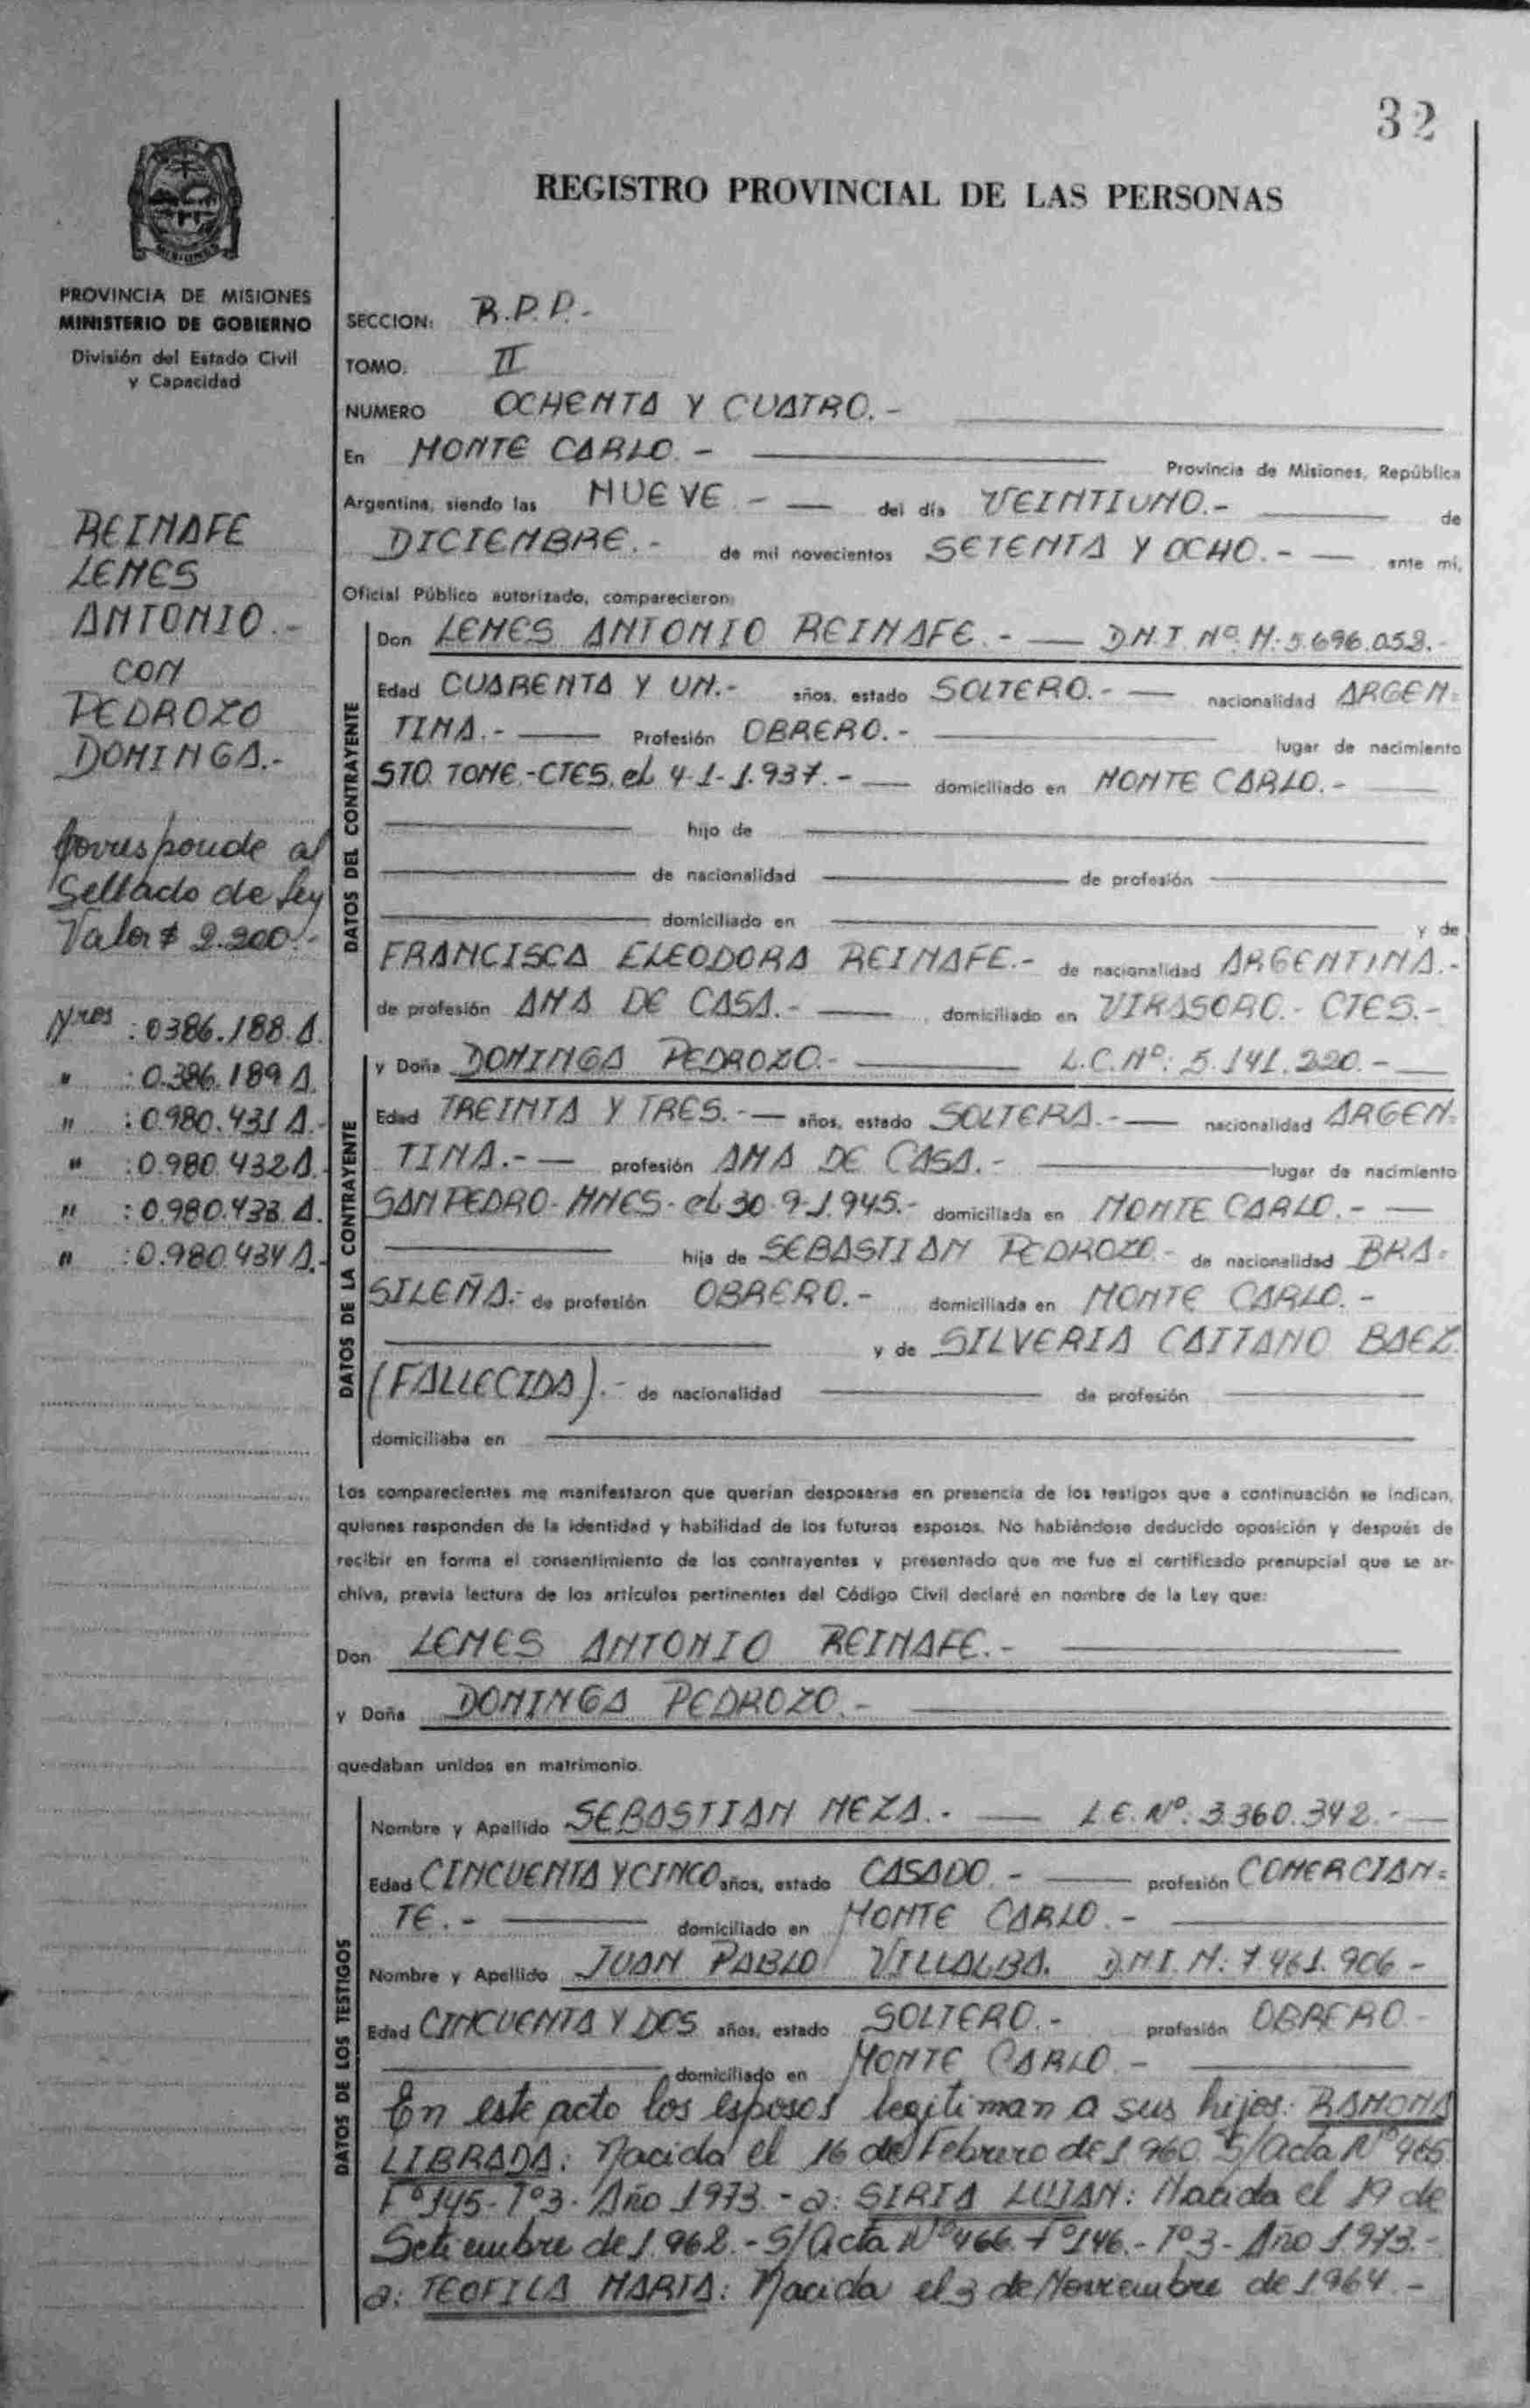 32
REGISTRO PROVINCIAL DE LAS PERSONAS
MISIONES
PROVINCIA DE MISIONES
MINISTERIO DE GOBIERNO
División del Estado Civil
y Capacidad
REINAFE
LEMES
ANTONIO.-
CON
PEDROZO
DOMINGA.-
Corresponde al
Sellado de ley
Valor $ 2.200.-
Nros : 0386.188.A.
" : 0.386.189 A.
" : 0.980.431 A.-
" : 0.980.432 A.-
" : 0.980.433.A.
" : 0.980.434 A.-
SECCION: R.P.P.-
TOMO. II
NUMERO OCHENTA Y CUATRO.-
En MONTE CARLO.- Provincia de Misiones, República
Argentina, siendo las NUEVE.- del día VEINTIUNO.- de
DICIEMBRE.- de mil novecientos SETENTA Y OCHO.- ante mí,
Oficial Público autorizado, comparecieron:
DATOS DEL CONTRAYENTE
Don LEMES ANTONIO REINAFE.- D.N.I. Nº. M: 5.696.058.-
Edad CUARENTA Y UN.- años, estado SOLTERO.- nacionalidad ARGEN=
TINA.- Profesión OBRERO.- lugar de nacimiento
STO. TOME.-CTES. el 4-1-1.937.- domiciliado en MONTE CARLO.-
hijo de
de nacionalidad de profesión
domiciliado en y de
FRANCISCA ELEODORA REINAFE.- de nacionalidad ARGENTINA.-
de profesión AMA DE CASA.- domiciliado en VIRASORO.- CTES.-
DATOS DE LA CONTRAYENTE
y Doña DOMINGA PEDROZO.- L.C. Nº: 5.141.220.-
Edad TREINTA Y TRES.- años, estado SOLTERA.- nacionalidad ARGEN-
TINA.- profesión AMA DE CASA.- lugar de nacimiento
SAN PEDRO- MNES- el 30-9-1.945.- domiciliada en MONTE CARLO.-
hija de SEBASTIAN PEDROZO.- de nacionalidad BRA=
SILEÑA.- de profesión OBRERO.- domiciliada en MONTE CARLO.-
y de SILVERIA CAITANO BAEZ.
(FALLECIDA).- de nacionalidad de profesión
domiciliaba en
Los comparecientes me manifestaron que querían desposarse en presencia de los testigos que a continuación se indican,
quienes responden de la identidad y habilidad de los futuros esposos. No habiéndose deducido oposición y después de
recibir en forma el consentimiento de los contrayentes y presentado que me fue el certificado prenupcial que se ar-
chiva, previa lectura de los artículos pertinentes del Código Civil declaré en nombre de la Ley que:
Don LEMES ANTONIO REINAFE.-
y Doña DOMINGA PEDROZO.-
quedaban unidos en matrimonio.
DATOS DE LOS TESTIGOS
Nombre y Apellido SEBASTIAN MEZA.- L.E. Nº: 3.360.342.-
Edad CINCUENTA Y CINCO años, estado CASADO.- profesión COMERCIAN=
TE.- domiciliado en MONTE CARLO.-
Nombre y Apellido JUAN PABLO VILLALBA. D.N.I. M: 7.461.906-
Edad CINCUENTA Y DOS años, estado SOLTERO.- profesión OBRERO-
domiciliado en MONTE CARLO.-
En este acto los esposos legitiman a sus hijos: RAMONA
LIBRADA: Nacida el 16 de Febrero de 1960. S/Acta Nº 465
Fº 145- Tº3- Año 1973.- a: SIRIA LUJAN: Nacida el 19 de
Setiembre de 1.962.- S/Acta Nº 466. Fº 146.- Tº 3- Año 1.973.-
a: TEOFILA MARIA: Nacida el 3 de Noviembre de 1964.-